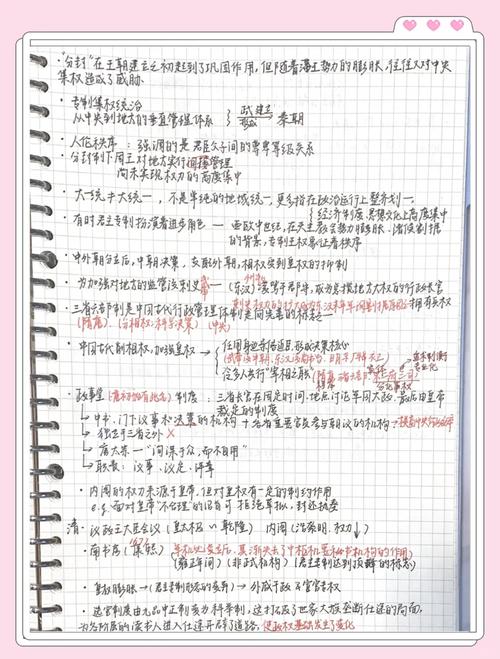 ·"分封"在王朝建立之初起到了巩固作用,但随着藩王势力的膨胀,往往又对中央
集权造成了威胁.
·专制集权统治
从中央到地方的垂直管理体系 } 武建立 秦朝
·人伦秩序:强调的是君臣父子间的尊卑等级关系
·分封制下周王对地方实行间接管理
尚未实现权力的高度集中
·大一统≠大统一,不是单纯的地域统一,更多指在政治运行上整齐划一.
{ 经济制度、思想文化上高度集中
·有时君主专制扮演着进步角色 — 西欧中世纪,在天主教会势力膨胀、诸侯割据
的背景,专制王权象征着秩序
·中外朝分立后,中朝决策,架取外朝,相权受到皇权的抑制
·为加强对地方的监管 — (东汉) 凌驾于郡守,成为是拥地方大权的行政长官
·三省六部制是中国古代行政管理体制走向完善的标志
(隋唐) (分相权,科学决策) (中央)
·中国古代削相权,加强皇权 → { 任用身边亲信近臣,形成决策核心
设多人执行"宰相之职"
·政事堂 制度:三省长官在固定时间、地点讨论军国大政,最后由皇帝
裁定的制度
↳ 中书、门下议事和决策的机构
↳ 独立于三省之外 ×
↳ 唐太宗 — "询谋于众,而不自用"
↳ 职责:议事、议定、评审
·内阁的权力来源于皇帝,但对皇权有一定的制约作用
e.g. 面对皇帝"不合理"的谕旨可 拒绝草拟,封还执奏
清:议政王大臣会议(皇太极 ~ 乾隆) 内阁(沿袭明,权力↓)
·南书房(康熙) 军机处设立后,其渐失去了中枢机要秘书机构的作用
(雍正年间) (非正式机构) (君主专制达到顶峰的标志)
·皇权膨胀 → (君主专制形态的变异) → 外戚干政、宦官专权
·选官制度由九品中正制变为科举制,这打破了世家大族垄断仕途的局面,
为各阶层的读书人进入仕途开辟了道路,使政权基础发生了变化